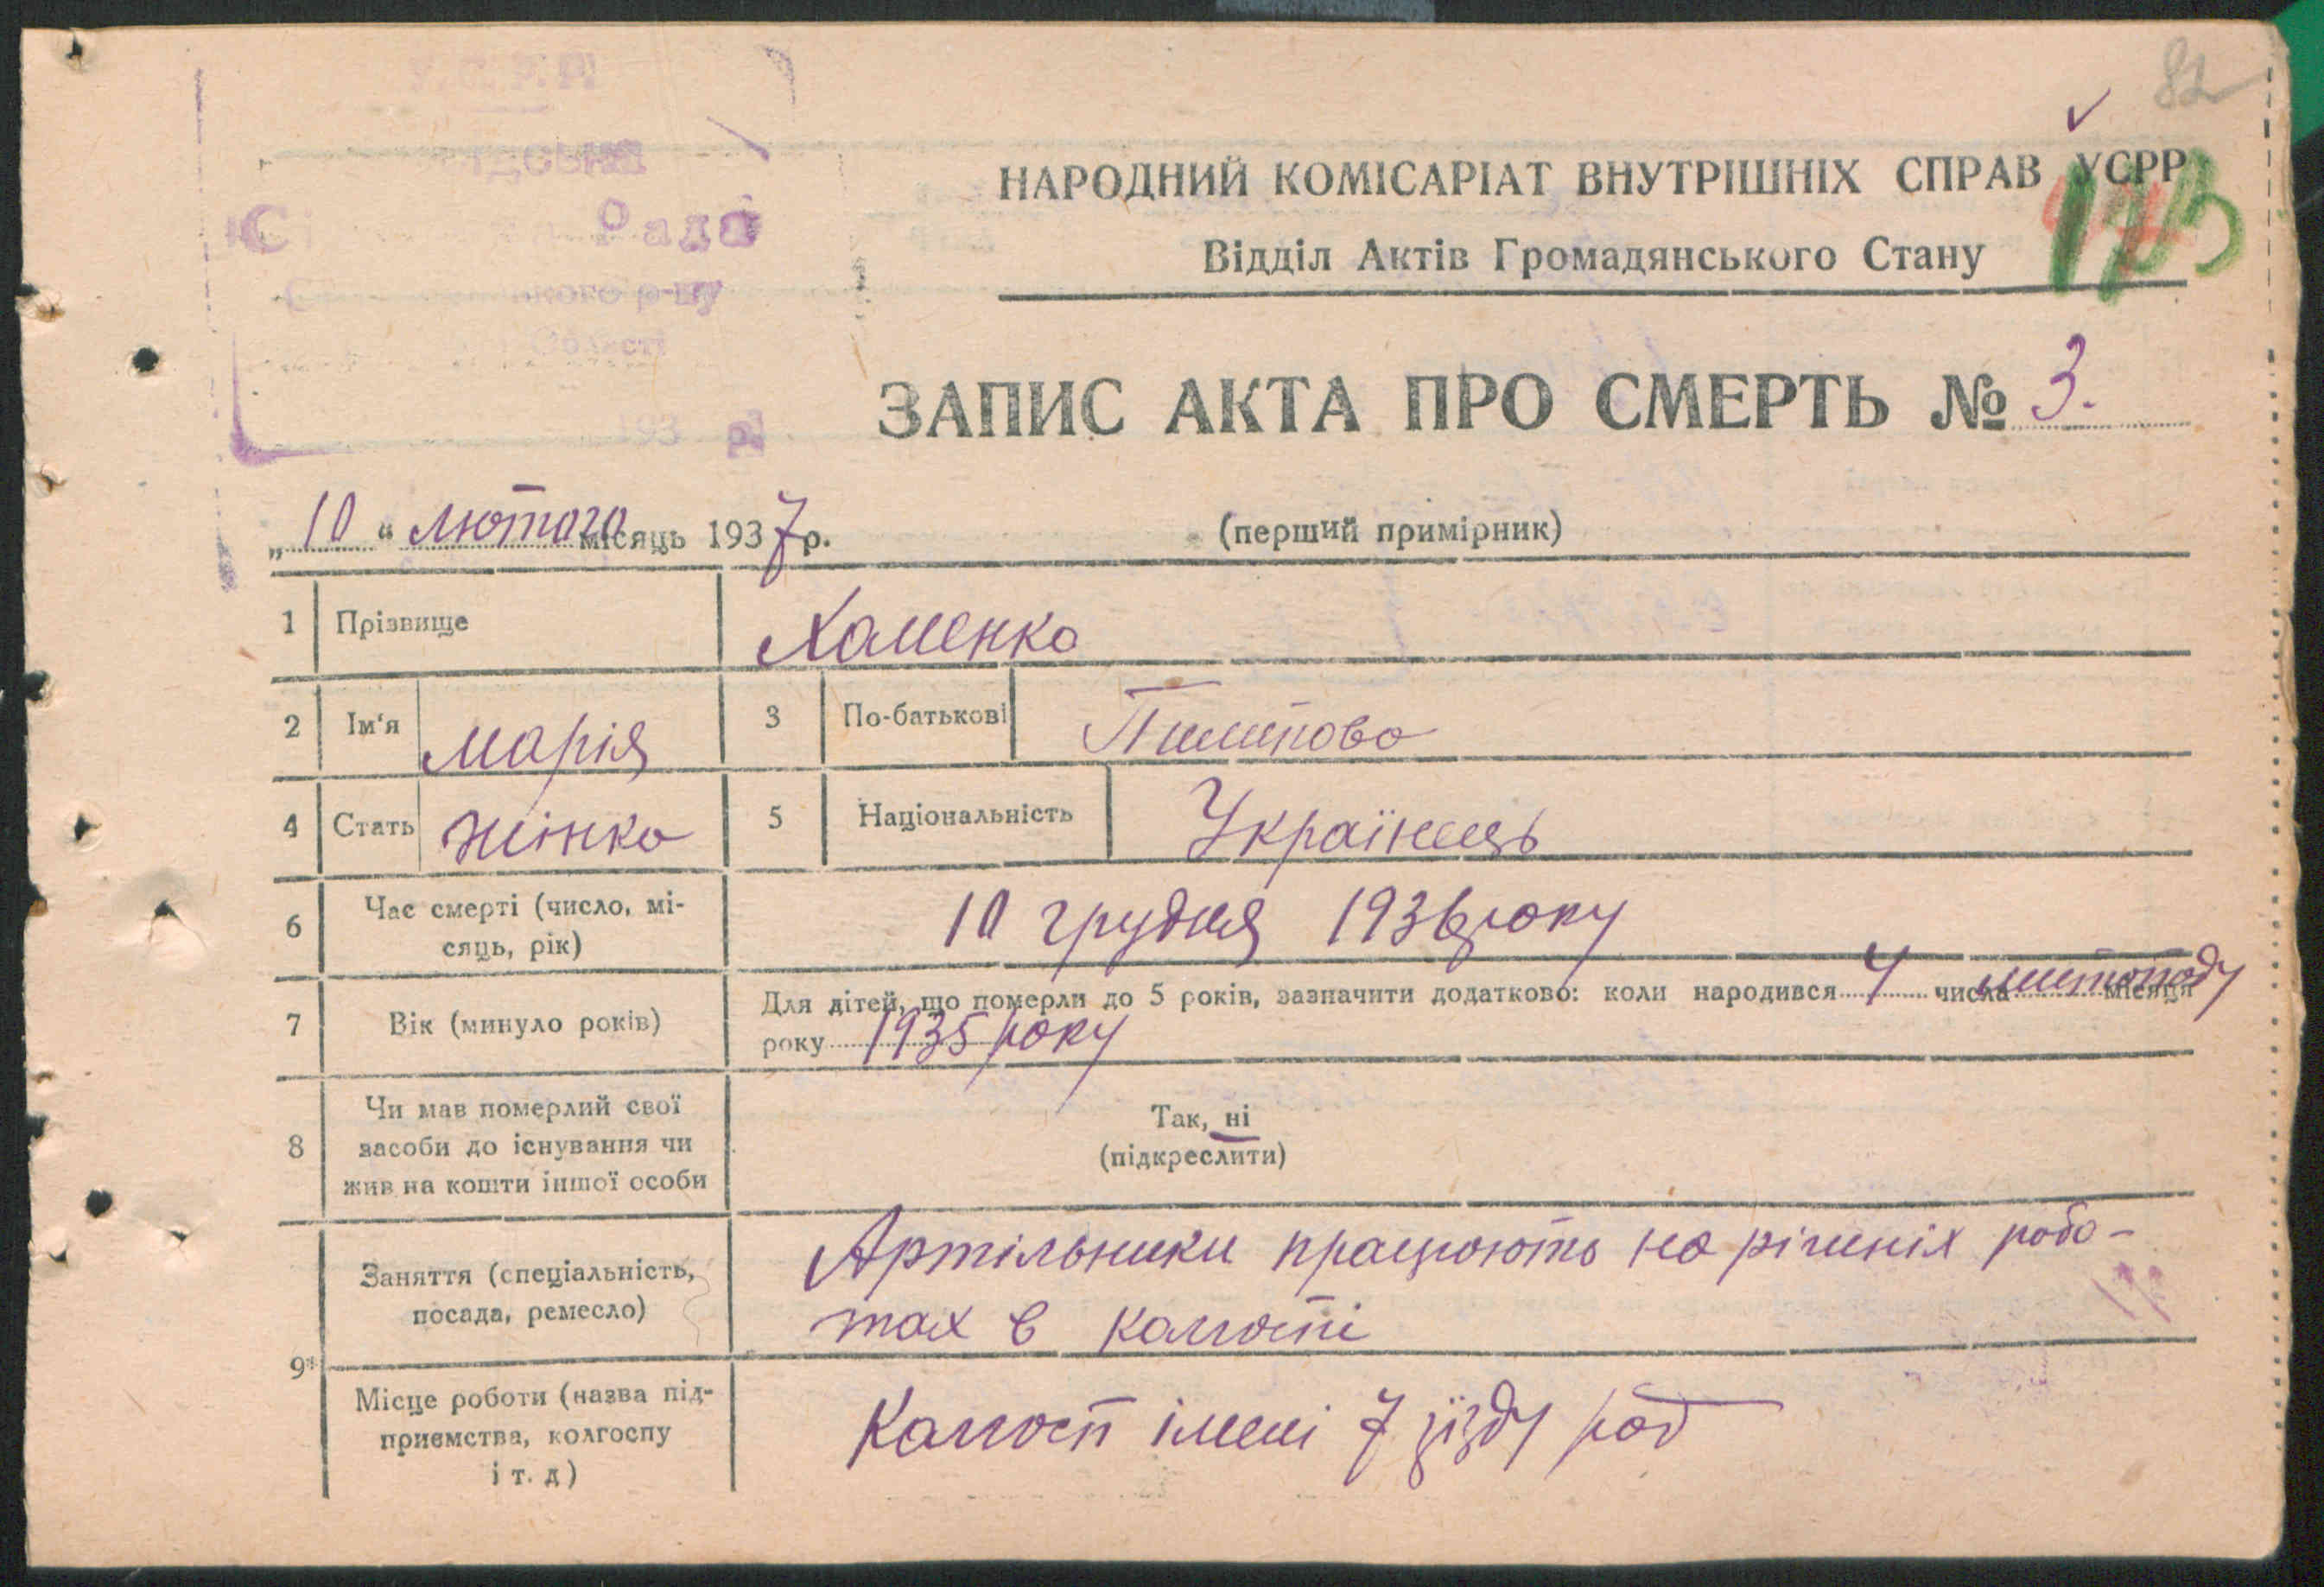 82
У.С.Р.Р.
Рада
ського р-ну
Області
193 р.
НАРОДНИЙ КОМІСАРІАТ ВНУТРІШНІХ СПРАВ УСРР
Відділ Актів Громадянського Стану
ЗАПИС АКТА ПРО СМЕРТЬ № 3.
„10“ лютого місяць 1937 р.
(перший примірник)
1 Прізвище Хоменко
2 Ім'я Марія 3 По-батькові Пилипово
4 Стать жінко 5 Національність Українець
6 Час смерті (число, мі-
сяць, рік) 10 грудня 1936 року
7 Вік (минуло років) Для дітей, що померли до 5 років, зазначити додатково: коли народився 4 числа листопаду місяця
року 1935 року
8 Чи мав померлий свої
засоби до існування чи
жив на кошти іншої особи
Так, ні
(підкреслити)
9*) Заняття (спеціальність,
посада, ремесло)
Артільники працюють на різних робо-
тах в колгоспі
Місце роботи (назва під-
приємства, колгоспу
і т. д)
Колгосп імені 7 зїзду рад